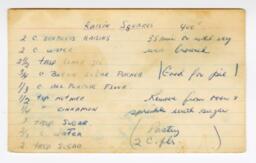 Raisin Squares 400°
2 C. Seedless Raisins 35 min or until very
2 C. Water well browned
2 1/2 Tbsp
3/4 C Brown Sugar Packed (Good for pie)
1/3 C. All Purpose Flour
1/2 tsp Nutmeg Remove from oven &
" Cinnamon sprinkle with sugar
Tbsp Sugar (Pastry
C. Water 2 C. flr)
2 Tbsp Sugar